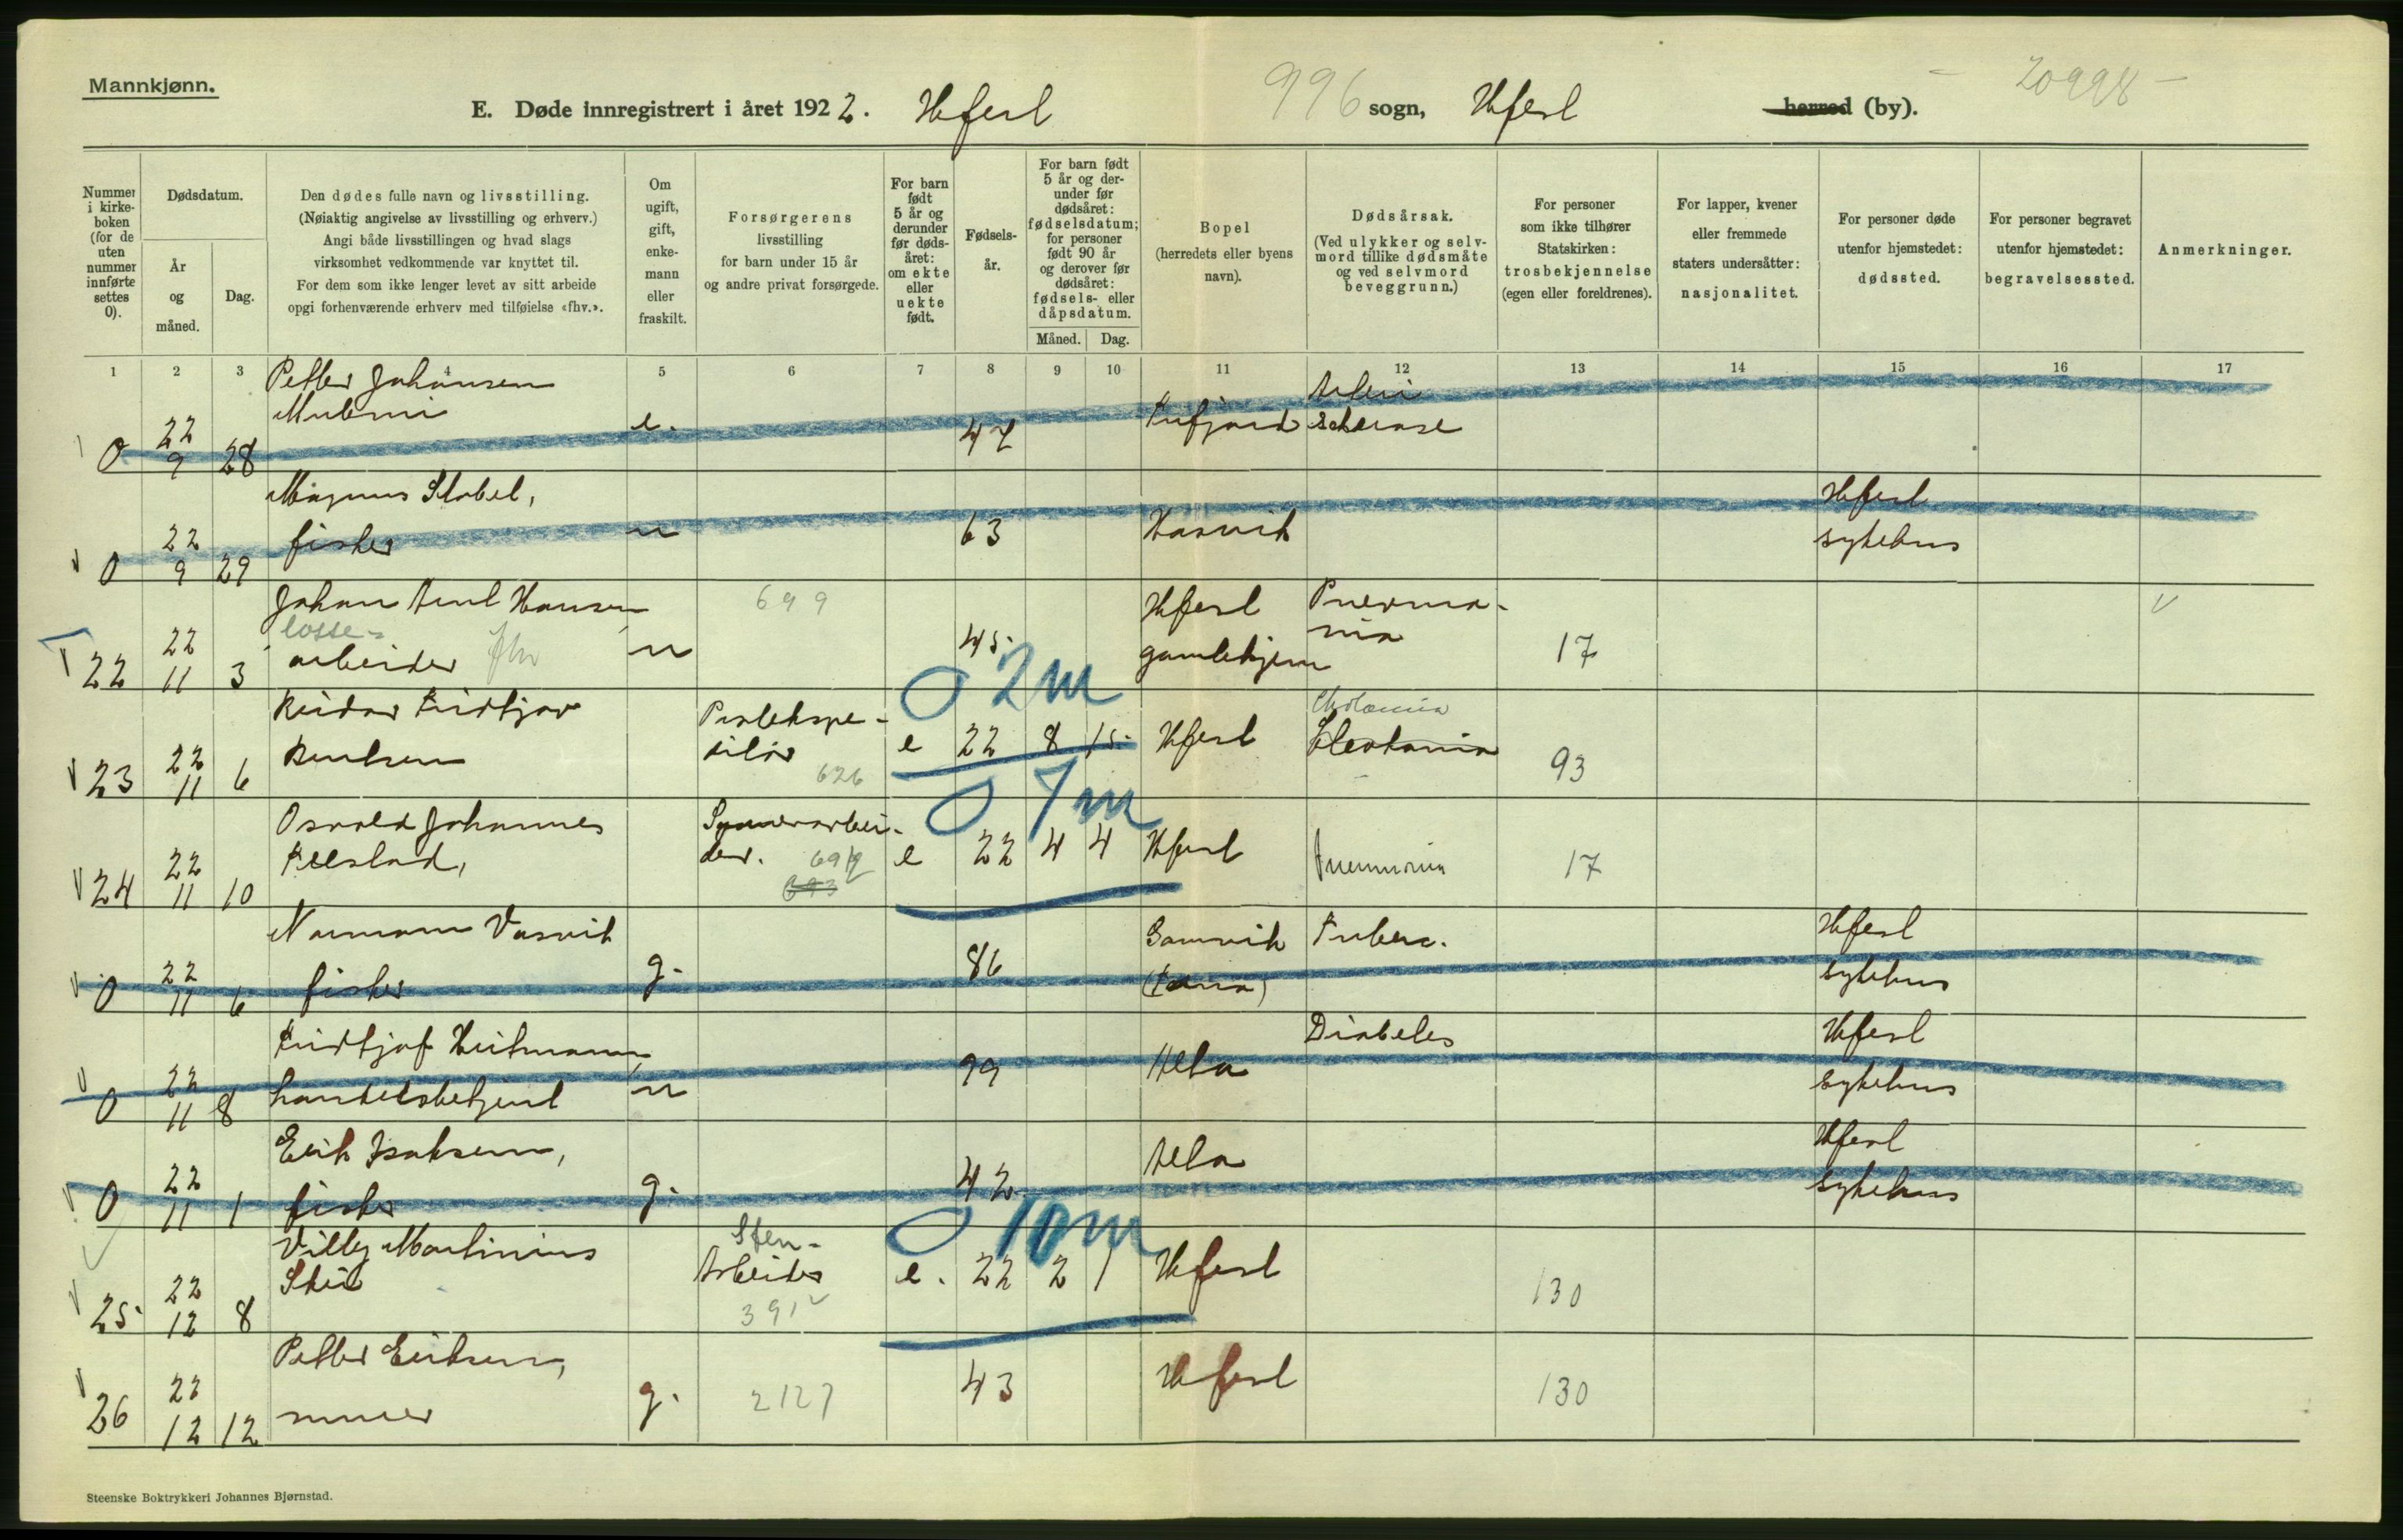 Mannkjønn.
E. Døde innregistrert i året 1922. Hfest 996 sogn, Hfest herred (by). 20998
Nummer i kirkeboken (for de uten nummer innførte settes 0).
Dødsdatum.
År og måned.
Dag.
Den dødes fulle navn og livsstilling.
(Nøiaktig angivelse av livsstilling og erhverv.)
Angi både livsstillingen og hvad slags
virksomhet vedkommende var knyttet til.
For dem som ikke lenger levet av sitt arbeide
opgi forhenværende erhverv med tilføielse «fhv.».
Om ugift, gift, enkemann eller fraskilt.
Forsørgerens
livsstilling
for barn under 15 år
og andre privat forsørgede.
For barn født 5 år og derunder før dødsåret: om ekte eller uekte født.
Fødselsår.
For barn født 5 år og derunder før dødsåret: fødselsdatum; for personer født 90 år og derover før dødsåret: fødsels- eller dåpsdatum.
Måned. Dag.
Bopel
(herredets eller byens
navn).
Dødsårsak.
(Ved ulykker og selvmord tillike dødsmåte og ved selvmord beveggrunn.)
For personer
som ikke tilhører
Statskirken:
trosbekjennelse
(egen eller foreldrenes).
For lapper, kvener
eller fremmede
staters undersåtter:
nasjonalitet.
For personer døde
utenfor hjemstedet:
dødssted.
For personer begravet
utenfor hjemstedet:
begravelsessted.
Anmerkninger.
1 2 3 4 5 6 7 8 9 10 11 12 13 14 15 16 17
Petter Johansen
0 22 9 28 e. 47
Magnus Stabel,
0 22 9 29 fisker u 63 Hasvik Hfest sykehus
Johan Hansen
22 22 11 3 losse-arbeider fhv u 699 45 Hfest gamlehjem Pneumonia 17
0 2m
Reidar Fridtjov
23 22 11 6 626 e 22 8 15 Hfest 93
0 7m
Osvald Johannes
24 22 11 10 692 693 e 22 4 4 Hfest Pneumonia 17
Normann Vasvik
0 22 11 6 fisker g. 86 Gamvik Tuberc. Hfest sykehus
Fridtjof Heitmann
0 22 11 8 handelsbetjent u 99 Alta Diabetes Hfest sykehus
Erik Isaksen,
0 22 11 1 fisker g. 42 Alta Hfest sykehus
0 10m
Villy Martinius
25 22 12 8 Sten-Arbeider 391 e. 22 2 1 Hfest 130
Petter Eriksen,
26 22 12 12 murer g. 2127 43 Hfest 130
Steenske Boktrykkeri Johannes Bjørnstad.